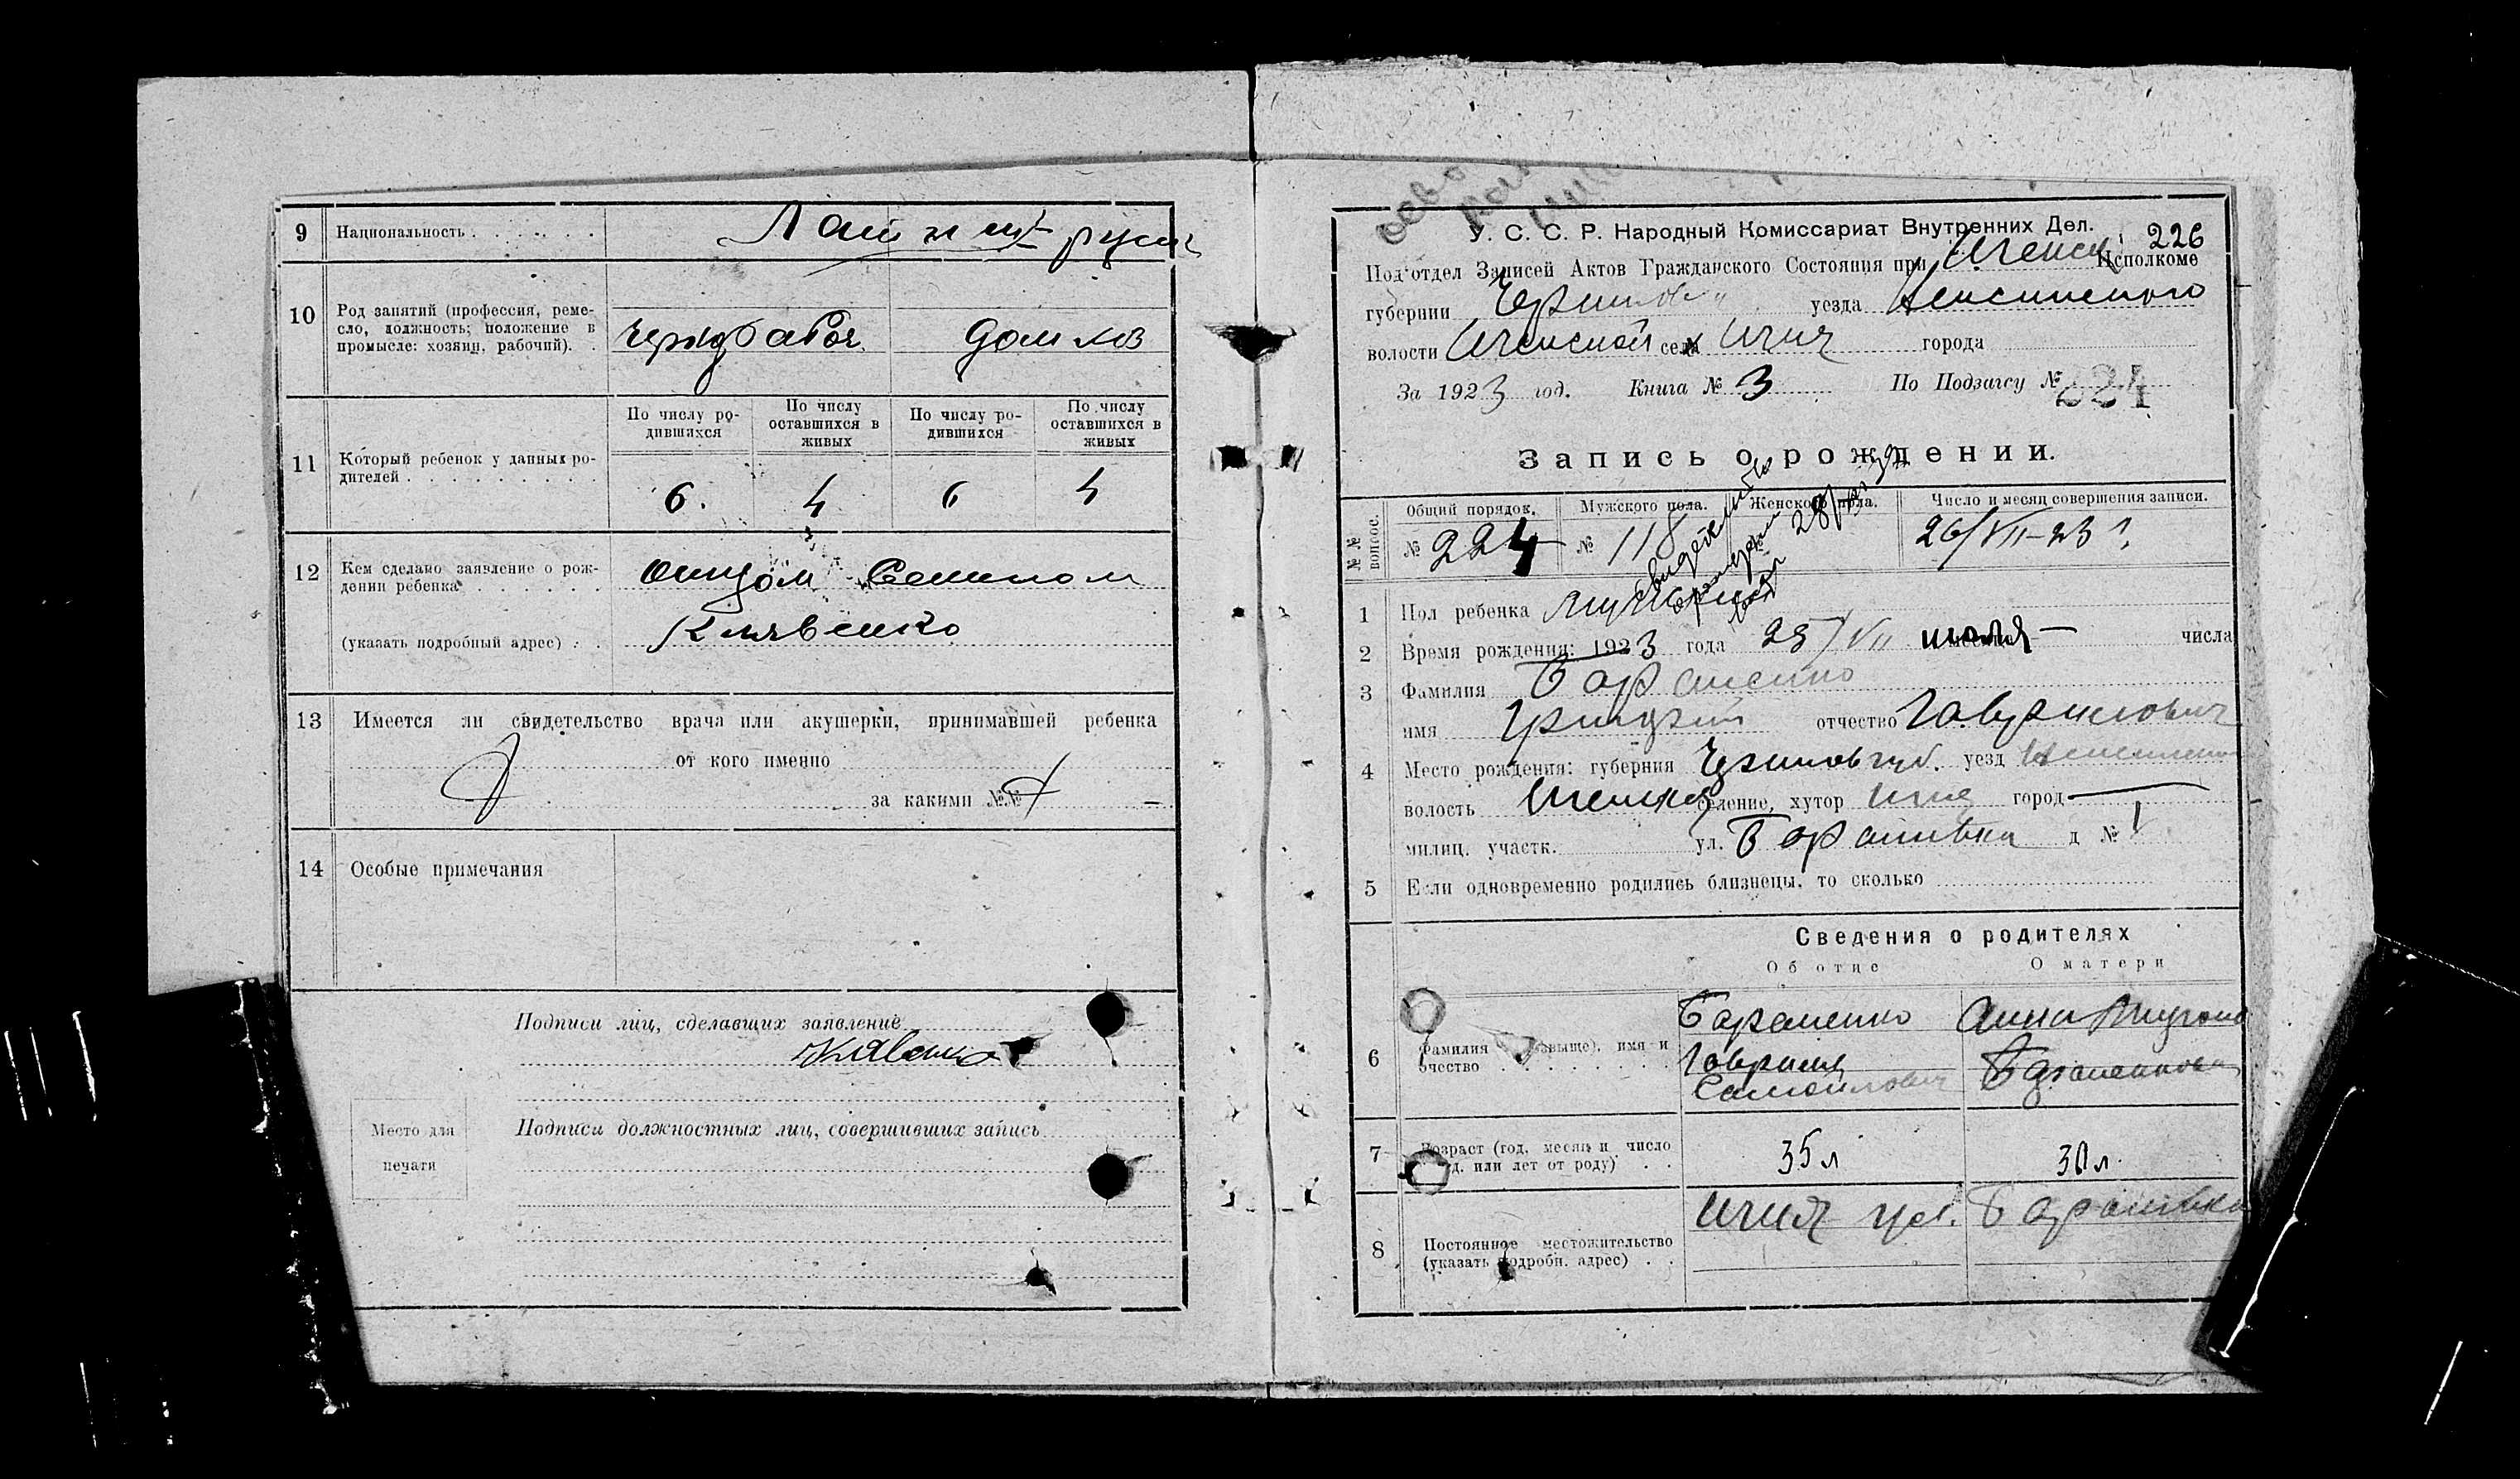 9 Национальность . . . . . .
10 Род занятий (профессия, реме-
сло, должность; положение в
промысле: хозяин, рабочий). .
домхоз
11 Который ребенок у данных ро-
дителей . . . . . . . . . .
По числу ро-
дившихся
По числу
оставшихся в
живых
По числу ро-
дившихся
По числу
оставшихся в
живых
6. 4 6 4
12 Кем сделано заявление о рож-
дении ребенка . . . . . .
(указать подробный адрес) . .
отцом
Клявенко
13 Имеется ли свидетельство врача или акушерки, принимавшей ребенка
от кого именно
за какими №№ —
14 Особые примечания
Подписи лиц, сделавших заявление
Клявенко
Место для
печати
Подписи должностных лиц, совершивших запись
У. С. С. Р. Народный Комиссариат Внутренних Дел.
226
Под'отдел Записей Актов Гражданского Состояния при Иченск. Исполкоме
губернии Чернигов уезда
волости Иченской села Ичня города
За 1923 год. Книга № 3 По Подзагсу № 224
Запись о рождении.
№№ вопрос.
Общий порядок. Мужского пола. Женского пола. Число и месяц совершения записи.
№ 224 № 118 № 26/VII-23 г.
1 Пол ребенка
2 Время рождения: 1923 года 25/VII июля — числа
3 Фамилия Бараненко
имя Григорий отчество Гаврилович
4 Место рождения: губерния Черниговгуб. уезд
волость селение, хутор Ичня город —
милиц. участк. ул. Барановка д № 1
5 Если одновременно родились близнецы, то сколько
Сведения о родителях
Об отце О матери
6 Фамилия имя и
отчество . . . . . . . . .
Бараненко
Гаврила
Самойлович
Анна
Бараненкова
7 Возраст (год, месяц и число
или лет от роду) . .
35 л 30 л.
8 Постоянное местожительство
(указать подробн. адрес) . .
Ичня ул. Барановка